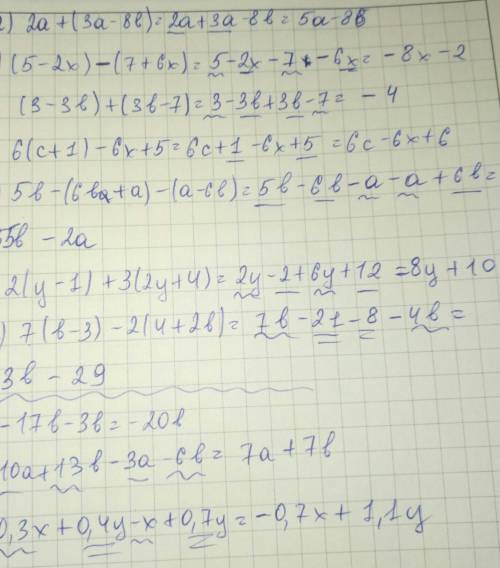 2) 2a + (3a - 8b) = 2a + 3a - 8b = 5a - 8b
) (5 - 2x) - (7 + 6x) = 5 - 2x - 7 - 6x = - 8x - 2
(3 - 3b) + (3b - 7) = 3 - 3b + 3b - 7 = - 4
6(c + 1) - 6x + 5 = 6c + 1 - 6x + 5 = 6c - 6x + 6
5b - (6b + a) - (a - 6b) = 5b - 6b - a - a + 6b =
5b - 2a
2(y - 1) + 3(2y + 4) = 2y - 2 + 6y + 12 = 8y + 10
) 7(b - 3) - 2(4 + 2b) = 7b - 21 - 8 - 4b =
3b - 29
- 17b - 3b = - 20b
10a + 13b - 3a - 6b = 7a + 7b
0,3x + 0,4y - x + 0,7y = - 0,7x + 1,1y